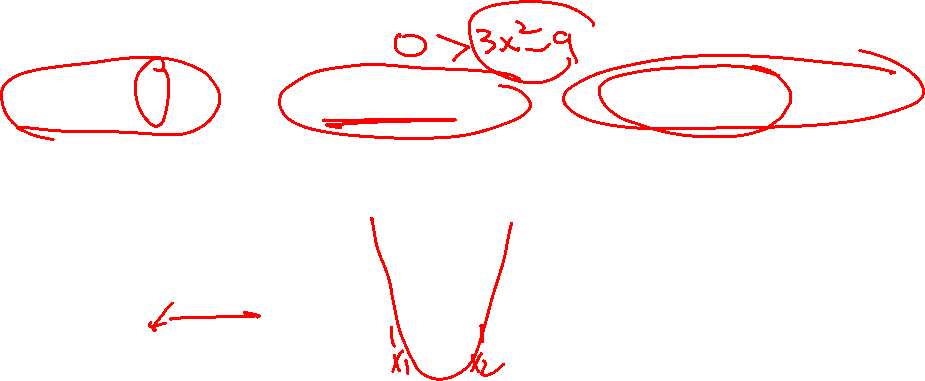 0 > 3x² - 9
x₁ x₂